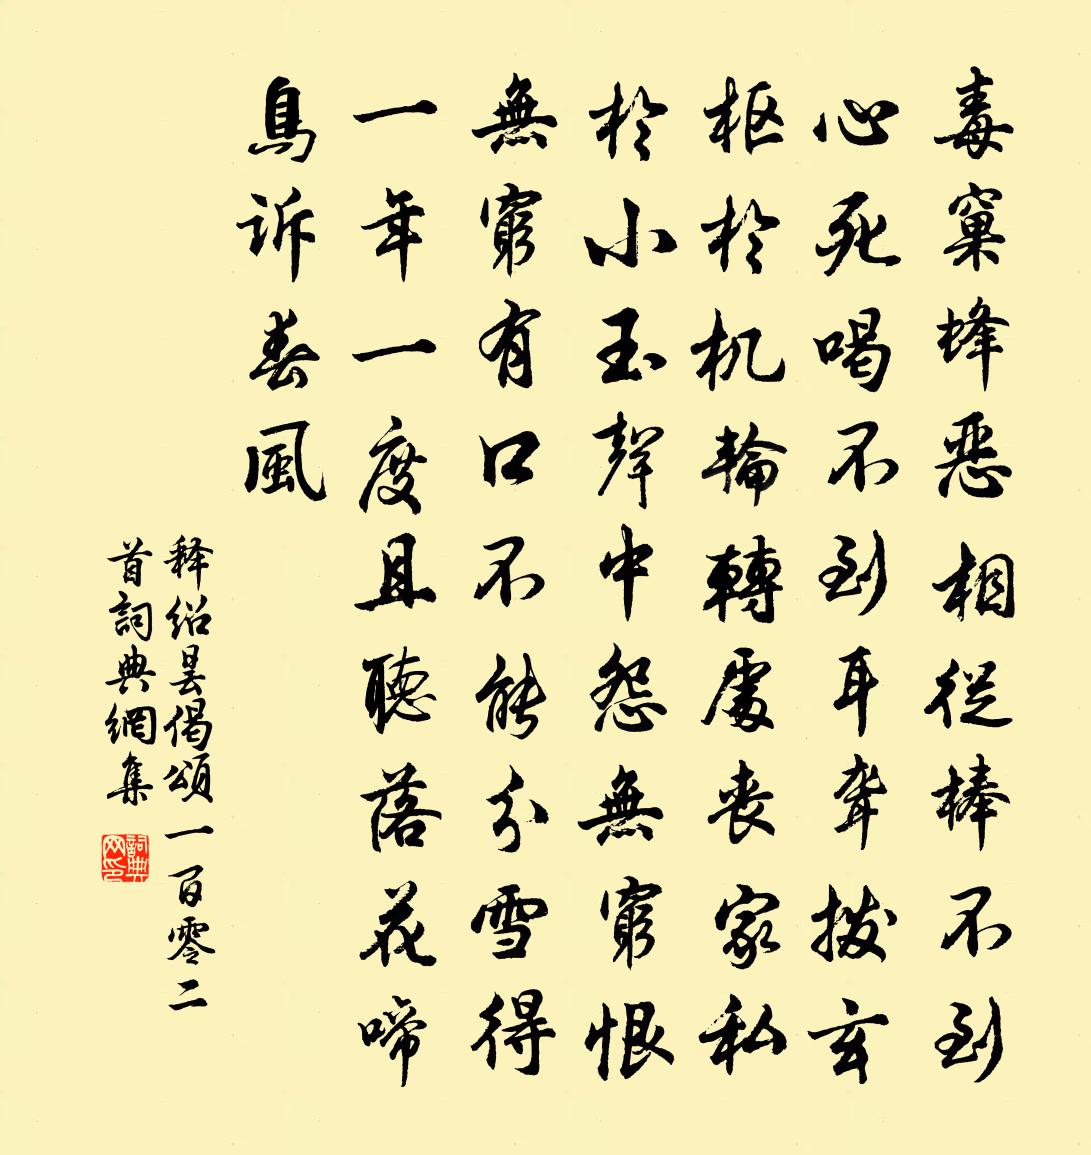 毒窠蜂恶相從棒不到
心死喝不到耳聾撥玄
枢於机輪轉處丧家私
於小玉聲中怨無窮恨
無窮有口不能分雪得
一年一度且聽落花啼
鳥诉春風
释绍昙偈頌一百零二
首詞典網集
詞典
网印